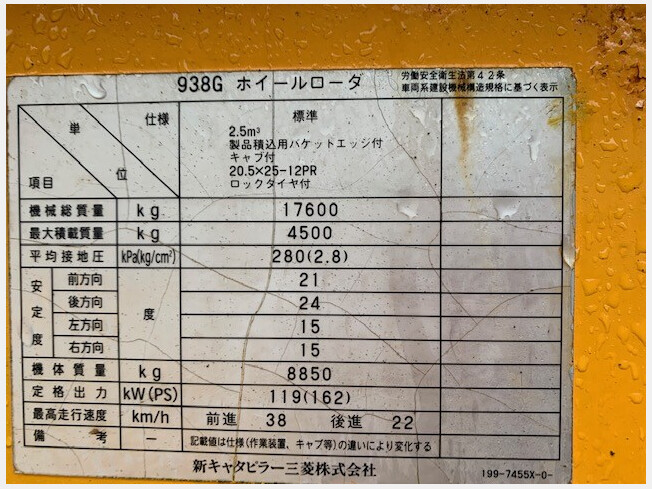 938G ホイールローダ
労働安全衛生法第42条
車両系建設機械構造規格に基づく表示
仕様
単位
項目
標準
2.5m³
製品積込用バケットエッジ付
キャブ付
20.5×25-12PR
ロックタイヤ付
機械総質量 kg 17600
最大積載質量 kg 4500
平均接地圧 kPa(kg/cm²) 280(2.8)
安定度 度
前方向 21
後方向 24
左方向 15
右方向 15
機体質量 kg 8850
定格出力 kW(PS) 119(162)
最高走行速度 km/h 前進 38 後進 22
備考 — 記載値は仕様(作業装置、キャブ等)の違いにより変化する
新キャタピラー三菱株式会社
199-7455X-0-